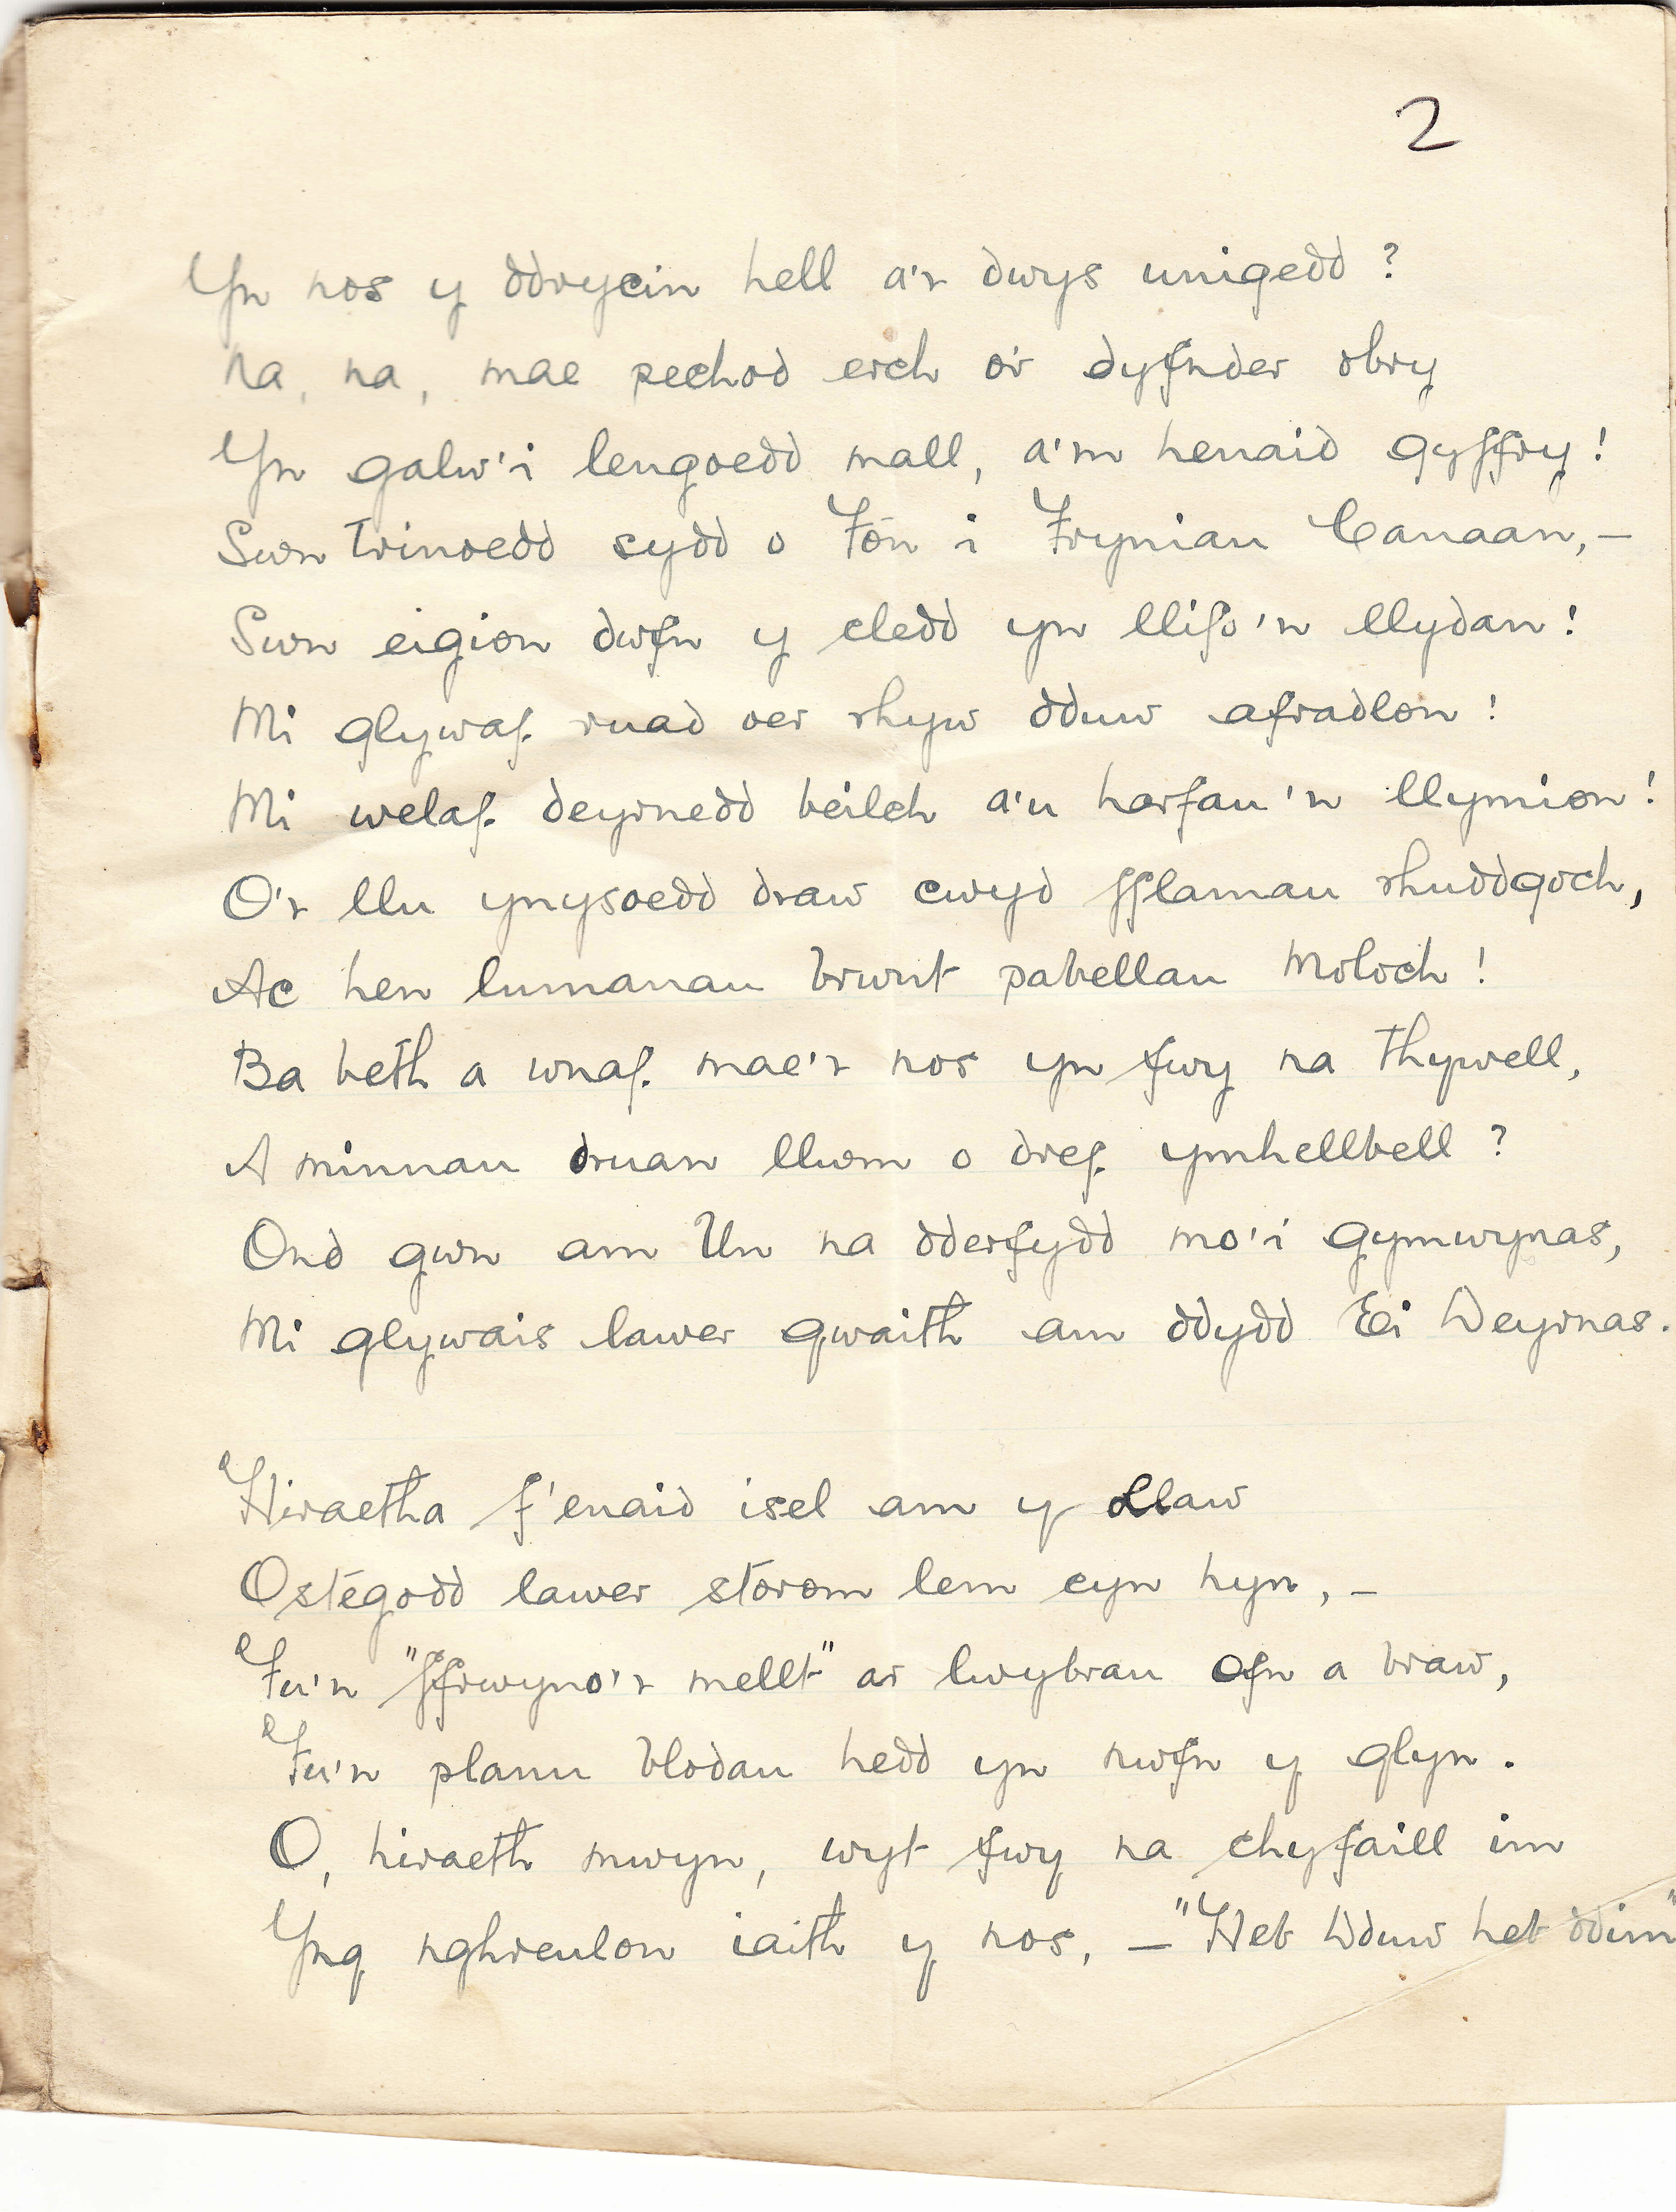 2
Yn nos y ddrycin hell a'r dwys unigedd?
Na, na, mae pechod erch o'r dyfnder obry
Yn galw'i lengoedd mall, a'm henaid gyffry!
Swn trinoedd sydd o Fôn i Frynian Canaan,—
Swn eigion dwfn y cledd yn llifo'n llydan!
Mi glywaf ruad oer rhyw dduw afradlon!
Mi welaf deyrnedd beilch a'u harfau'n llymion!
O'r llu ynysoedd draw cwyd fflamau rhuddgoch,
Ac hen lumanau brwnt pabellau Moloch!
Ba beth a wnaf mae'r nos yn fwy na thywell,
A minnau druan llwm o dref ymhellbell?
Ond gwn am Un na dderfydd mo'i gymwynas,
Mi glywais lawer gwaith am ddydd Ei Deyrnas.
Hiraetha f'enaid isel am y Llaw
Ostegodd lawer storom lem cyn hyn,—
Fu'n "ffrwyno'r mellt" ar lwybrau ofn a braw,
Fu'n plannu blodau hedd yn nwfn y glyn.
O, hiraeth mwyn, wyt fwy na chyfaill im
Yng nghreulon iaith y nos,— "Heb Dduw heb ddim"